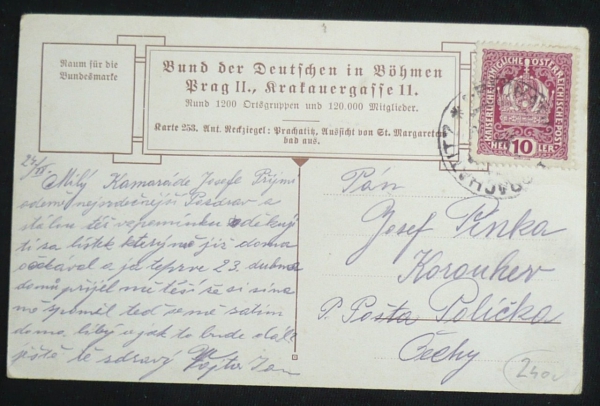 Raum für die
Bundesmarke
Bund der Deutschen in Böhmen
Prag II., Krakauergasse 11.
Rund 1200 Ortsgruppen und 120.000 Mitglieder.
Karte 253. Ant. Reckziegel: Prachatitz, Aussicht von St. Margareten-
bad aus.
KAISERLICHE KÖNIGLICHE ÖSTERREICHISCHE POST
HELLER
10
Milý Kamaráde Josefe Přijmi
odemě nejsrdečnější Pozdrav a
stálou též vzpomínku děkuji
ti za lístek který mě již doma
očekával a já teprve 23. dubna
domů přijel mě těší že si si na
mě zpoměl teď se mě zatím
doma líbý a jak to bude dále
ještě
zdravý
Jan
Pán
Josef
Korouhev
P. Pošta Polička
Čechy
240